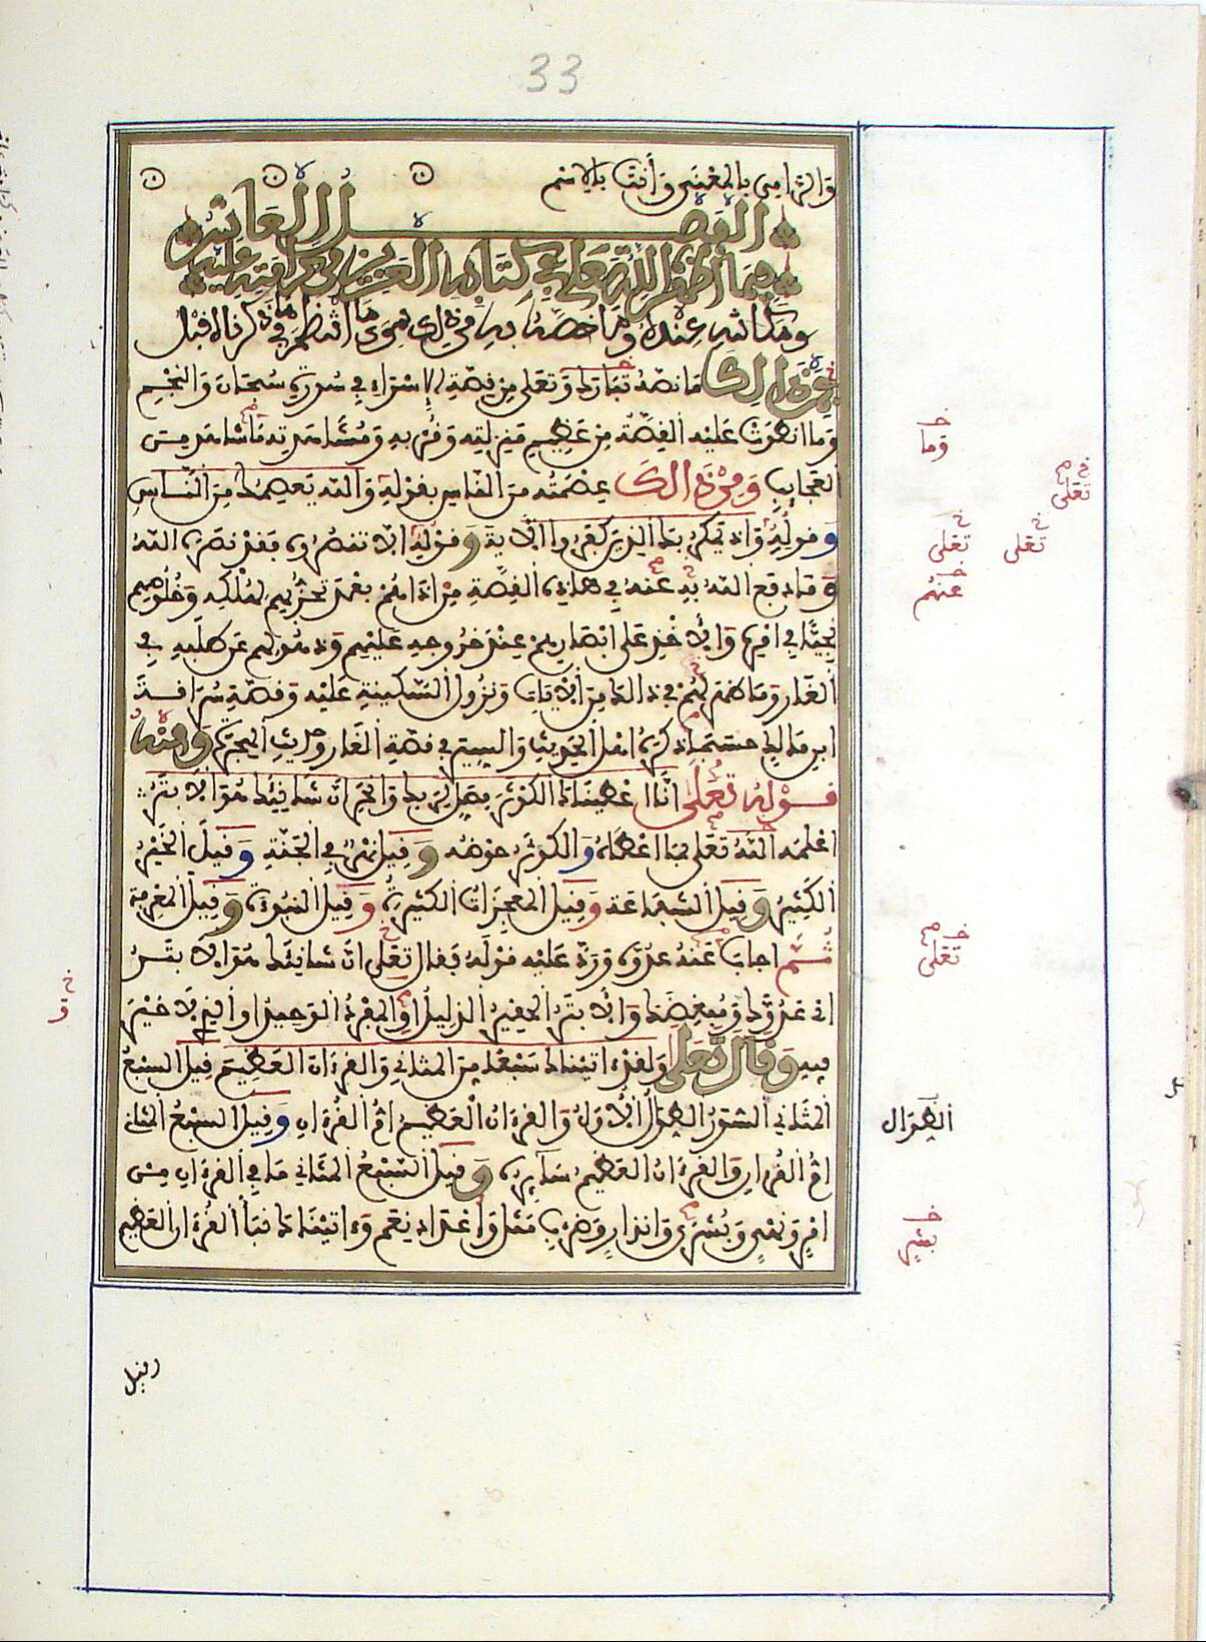 33
والثامن بالمعنى وأنت بالاسم
الفصل العاشر
فيما أظهر الله تعلى في كتابه العزيز من كرامته عليه
ومكانته عنده وما خصه به من ذلك سوى ما انتظم فيما ذكرناه قبل
فمن ذالك ما نصه تبارك وتعلى من قصة الإسراء في سورة سبحان والنجم
وما انطوت عليه القصة من عظيم منزلته وقربه ومشاهدته ما شاهد من
العجايب ومن ذالك عصمته من الناس بقوله والله يعصمك من الناس
وقوله وإذ يمكر بك الذين كفروا الآية وقوله إلا تنصروه فقد نصره الله
وما دفع الله به عنه في هذه القصة من أذاهم بعد تحزبهم لهلكه وخلوصهم
نجيا في أمره والأخذ على أبصارهم عند خروجه عليهم وذهولهم عن طلبه في
الغار وما ظهر لهم في ذالك من الآيات ونزول السكينة عليه وقصة سراقة
ابن مالك حسبما ذكره أهل الحديث والسير في قصة الغار وحديث الهجرة ومنه
قوله تعلى إنا أعطيناك الكوثر فصل لربك وانحر إن شانئك هو الأبتر
أعلمه الله تعلى بما أعطاه والكوثر حوضه وقيل نهر في الجنة وقيل الخير
الكثير وقيل الشفاعة وقيل المعجزات الكثيرة وقيل النبوة وقيل المعرفة
ثم أجاب عنه عدوه ورد عليه قوله فقال تعلى إن شانئك هو الأبتر
أي عدوك ومبغضك والأبتر الحقير الذليل أو المفرد الوحيد أو الذي لا خير
فيه وقال تعلى ولقد آتيناك سبعا من المثاني والقرءان العظيم قيل السبع
المثاني السور الطوال الأول والقرءان العظيم أم القرءان وقيل السبع المثاني
أم القرءان والقرءان العظيم سايره وقيل السبع المثاني ما في القرءان من
أمر ونهي وبشرى وإنذار وضرب مثل وإعداد نعم وءاتيناك نبأ القرءان العظيم
وما
تعلى
تعلى
تعلى
عنهم
تعلى
الطوال
بشر
وقيل